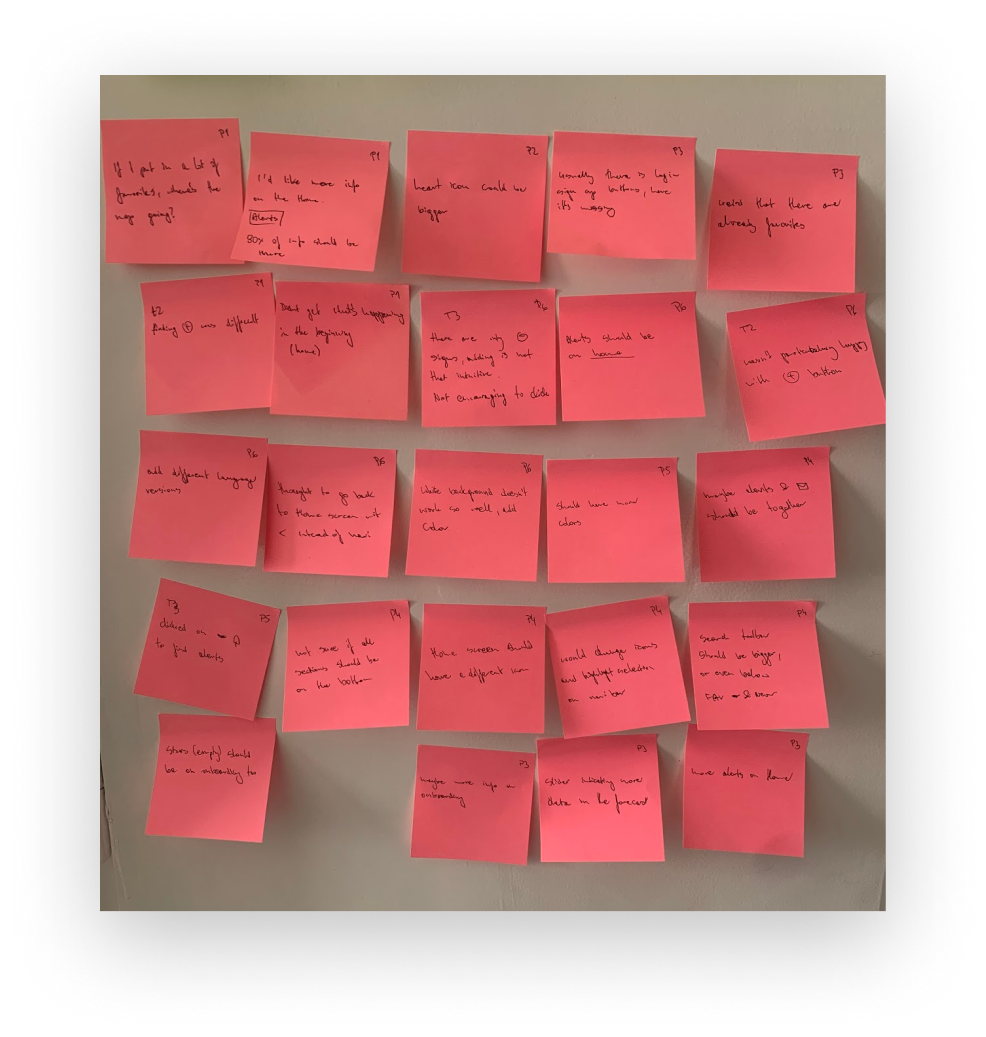 P1
If I put in a lot of
favorites, where's the
map going?
P1
I'd like more info
on the Home.
Alerts
80% of info should be
there
P2
heart icon could be
bigger
P3
usually there is login
sign up buttons, here
it's messy
P3
weird that there are
already favorites
P1
finding + was difficult
P1
Didn't get what's happening
in the beginning
(home)
P6
T3
there are only
signs, adding is not
that intuitive.
Not encouraging to click
P6
Alerts should be
on home
P6
T2
wasn't particularly happy
with + button
P6
add different language
versions
P6
thought to go back
to Home screen with
< instead of nav.
P6
White background doesn't
work so well, add
Color
P5
should have more
colors
P4
maybe alerts &
should be together
P5
T3
clicked on
to find alerts
P4
not sure if all
sections should be
on the bottom
P4
Home screen should
have a different icon
P4
would change icons
and highlight selection
on navibar
P4
search toolbar
should be bigger,
or even below
FAV
(empty) should
be on onboarding too
P3
maybe more info on
onboarding
P3
slider indicating more
data in the forecast
P3
more alerts on Home